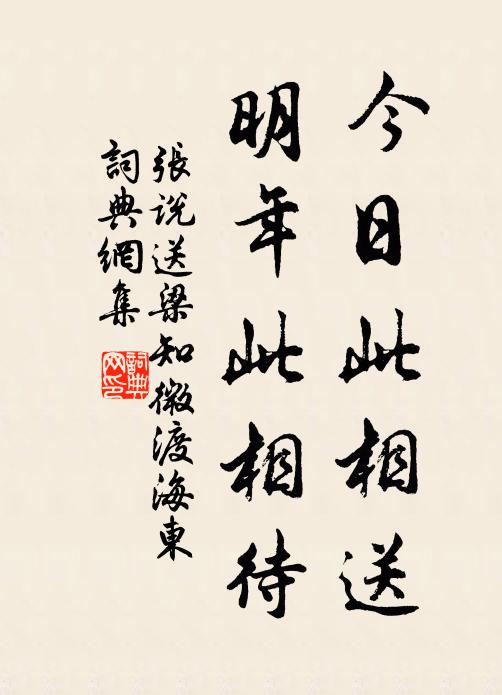 今日此相送
明年此相待
張説送梁知微渡海東
詞典網集
詞典
网印